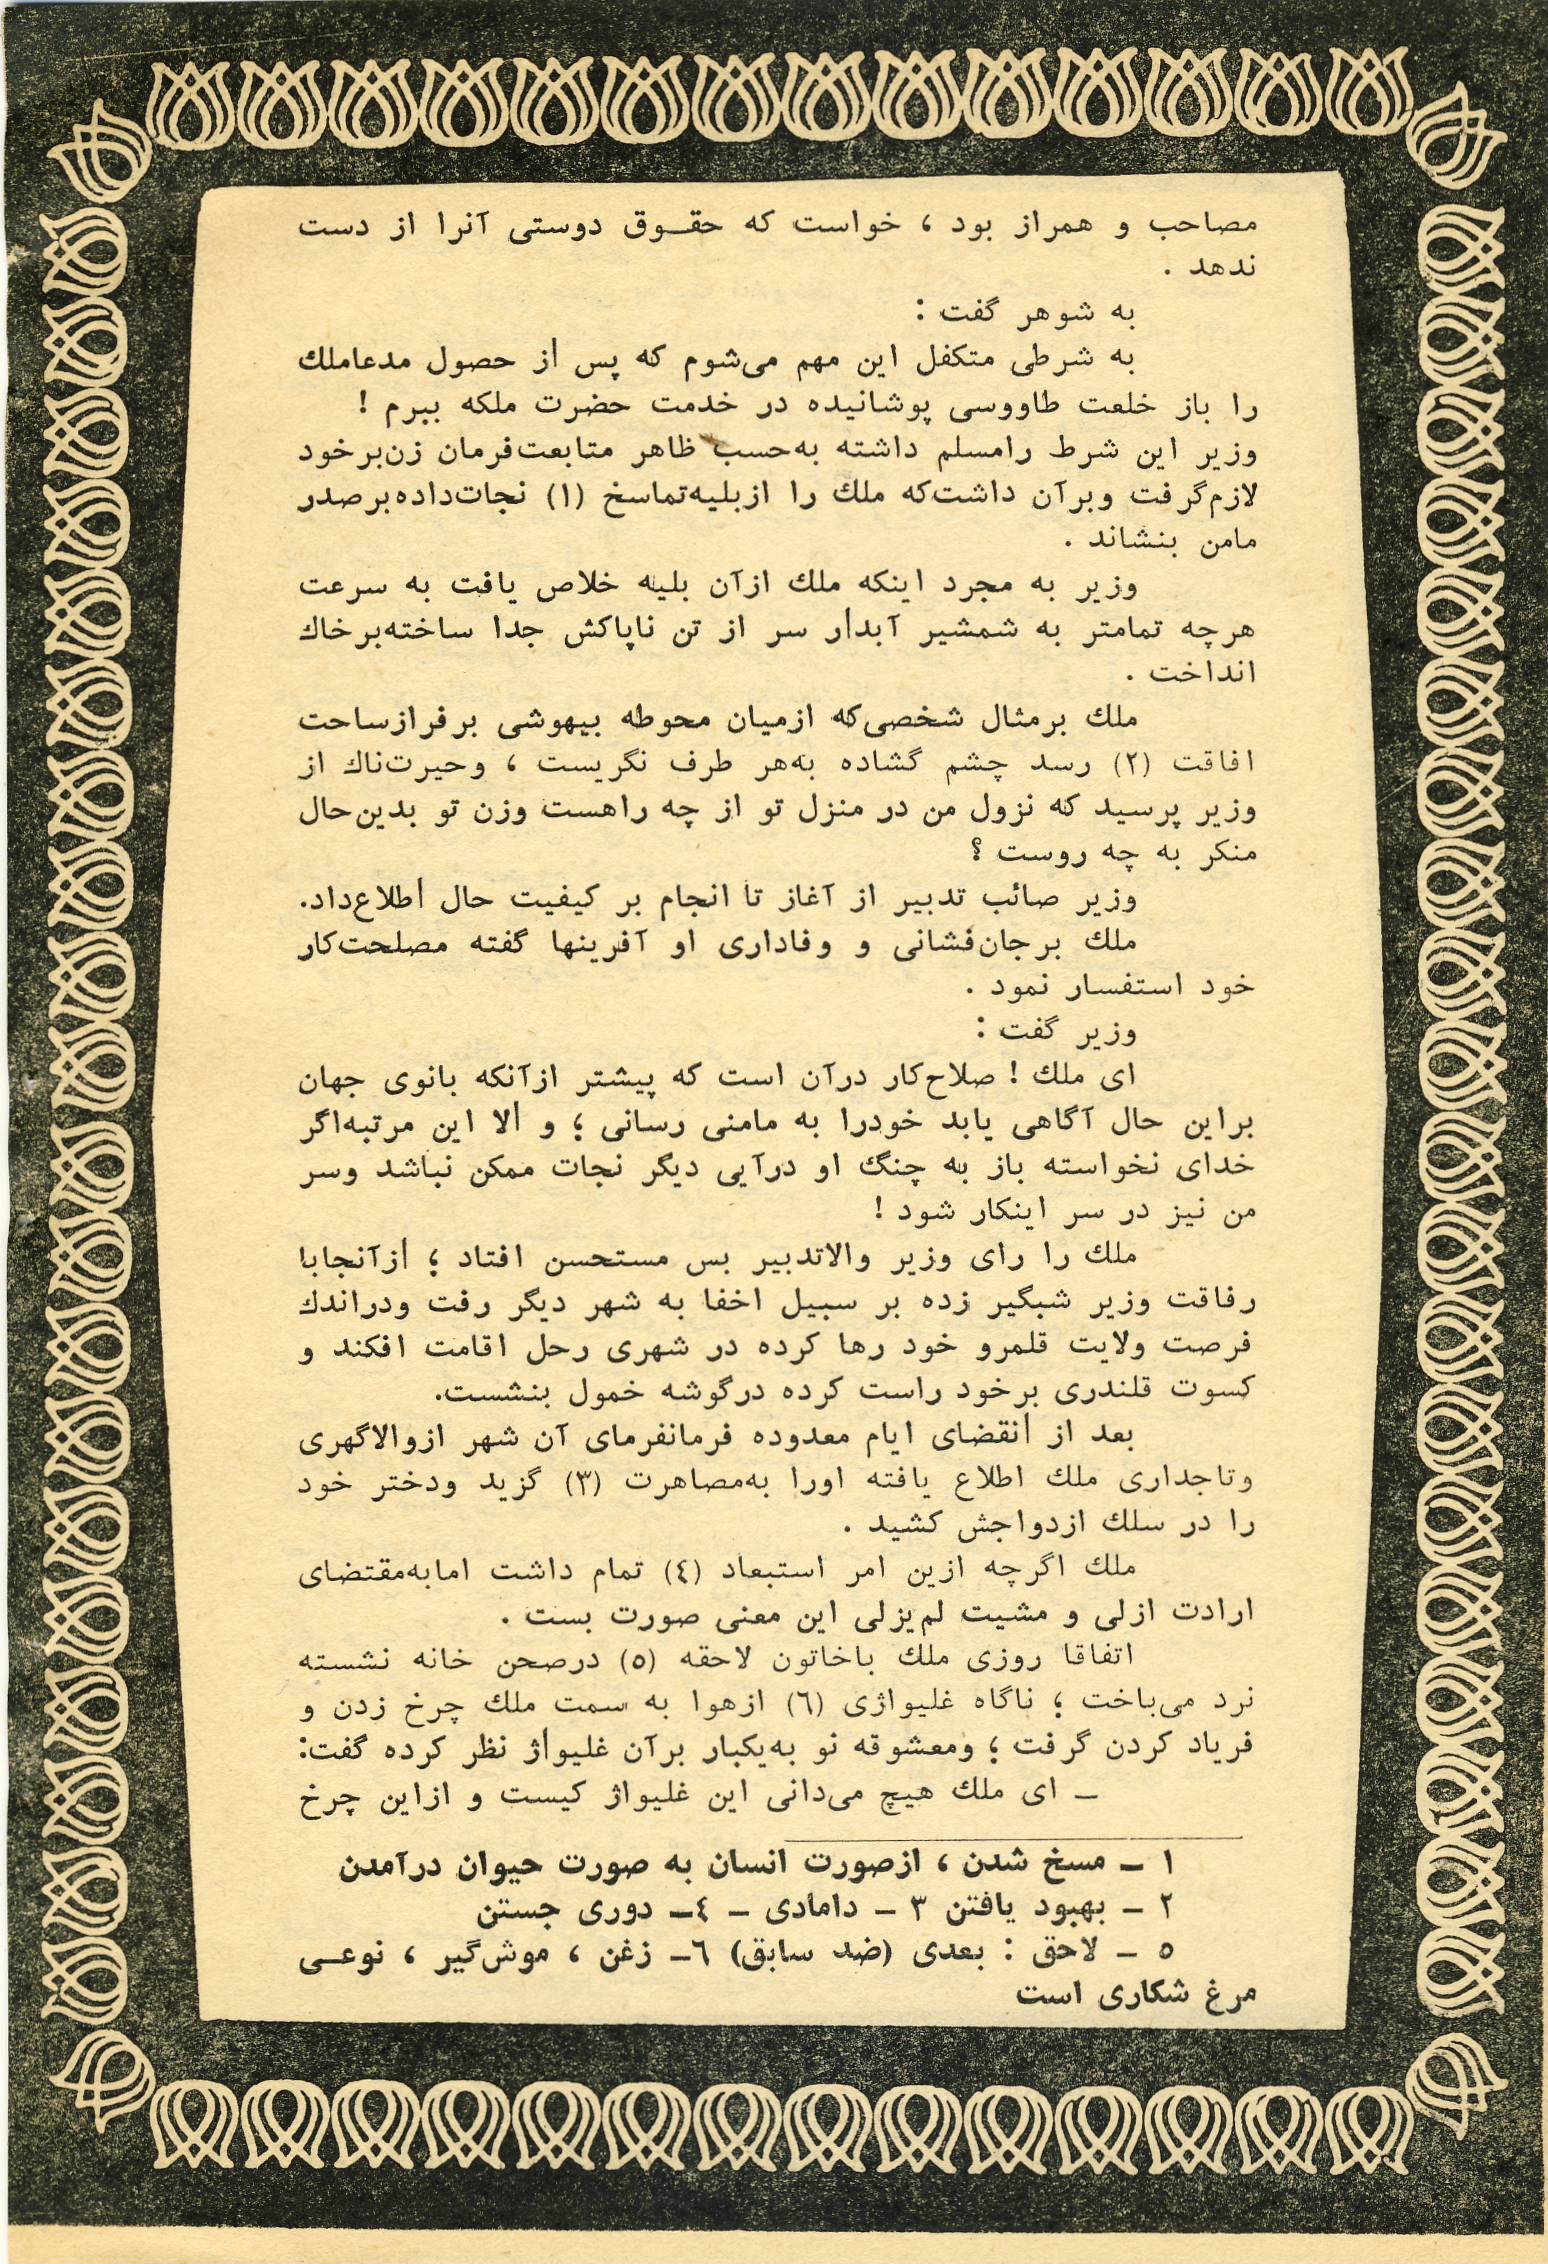 مصاحب و همراز بود ، خواست که حقــوق دوستی آنرا از دست
ندهد .
به شوهر گفت :
به شرطی متکفل این مهم می‌شوم که پس از حصول مدعاملك
را باز خلعت طاووسی پوشانیده در خدمت حضرت ملکه ببرم !
وزیر این شرط رامسلم داشته به‌حسب ظاهر متابعت‌فرمان زن‌برخود
لازم‌گرفت وبرآن داشت‌که ملك را ازبلیه‌تماسخ (۱) نجات‌داده‌برصدر
مامن بنشاند .
وزیر به مجرد اینکه ملك ازآن بلیه خلاص یافت به سرعت
هرچه تمامتر به شمشیر آبدار سر از تن ناپاکش جدا ساخته‌برخاك
انداخت .
ملك برمثال شخصی‌که ازمیان محوطه بیهوشی برفرازساحت
افاقت (۲) رسد چشم گشاده به‌هر طرف نگریست ، وحیرت‌ناك از
وزیر پرسید که نزول من در منزل تو از چه راهست وزن تو بدین‌حال
منکر به چه روست ؟
وزیر صائب تدبیر از آغاز تا انجام بر کیفیت حال اطلاع‌داد.
ملك برجان‌فشانی و وفاداری او آفرینها گفته مصلحت‌کار
خود استفسار نمود .
وزیر گفت :
ای ملك ! صلاح‌کار درآن است که پیشتر ازآنکه بانوی جهان
براین حال آگاهی یابد خودرا به مامنی رسانی ؛ و الا این مرتبه‌اگر
خدای نخواسته باز به چنگ او درآیی دیگر نجات ممکن نباشد وسر
من نیز در سر اینکار شود !
ملك را رای وزیر والاتدبیر بس مستحسن افتاد ؛ ازآنجابا
رفاقت وزیر شبگیر زده بر سبیل اخفا به شهر دیگر رفت ودراندك
فرصت ولایت قلمرو خود رها کرده در شهری رحل اقامت افکند و
کسوت قلندری برخود راست کرده درگوشه خمول بنشست.
بعد از انقضای ایام معدوده فرمانفرمای آن شهر ازوالاگهری
وتاجداری ملك اطلاع یافته اورا به‌مصاهرت (۳) گزید ودختر خود
را در سلك ازدواجش کشید .
ملك اگرچه ازین امر استبعاد (٤) تمام داشت امابه‌مقتضای
ارادت ازلی و مشیت لم‌یزلی این معنی صورت بست .
اتفاقا روزی ملك باخاتون لاحقه (۵) درصحن خانه نشسته
نرد می‌باخت ؛ ناگاه غلیواژی (٦) ازهوا به سمت ملك چرخ زدن و
فریاد کردن گرفت ؛ ومعشوقه نو به‌یکبار برآن غلیواژ نظر کرده گفت:
ــ ای ملك هیچ می‌دانی این غلیواژ کیست و ازاین چرخ
۱ ــ مسخ شدن ، ازصورت انسان به صورت حیوان درآمدن
۲ ــ بهبود یافتن ۳ ــ دامادی ــ ٤ــ دوری جستن
۵ ــ لاحق : بعدی (ضد سابق) ٦ــ زغن ، موش‌گیر ، نوعــی
مرغ شکاری است